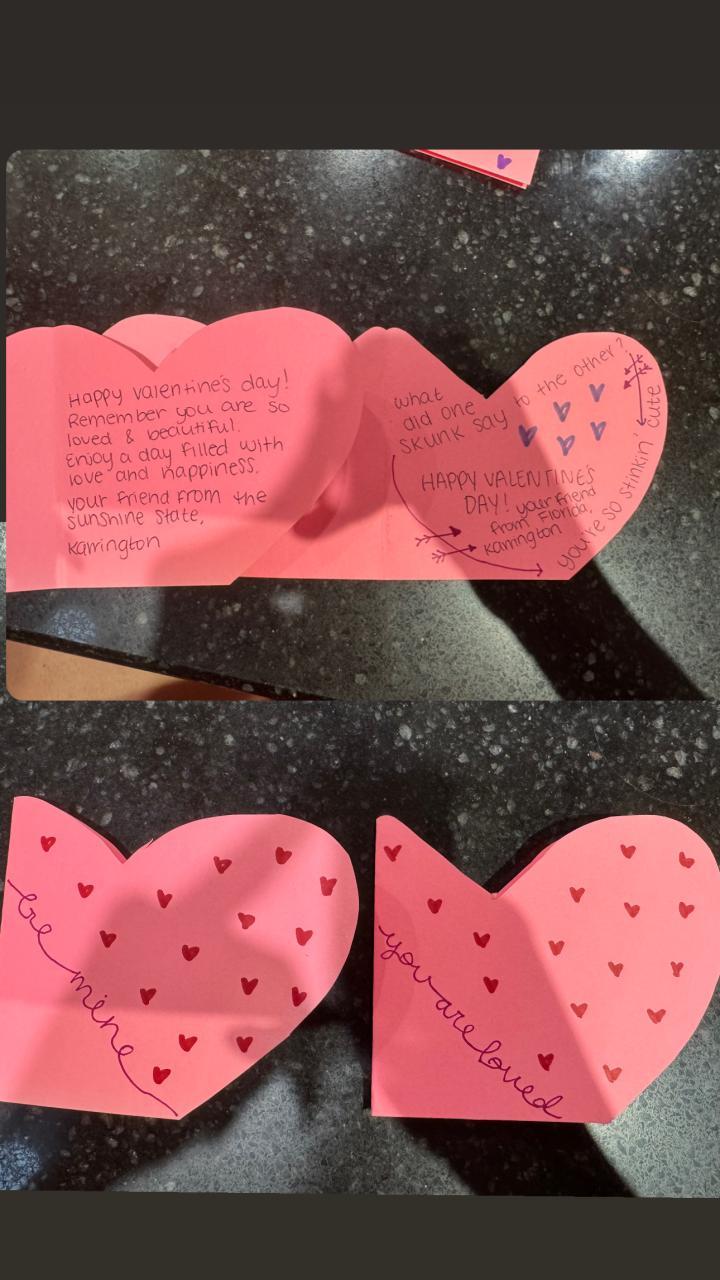 Happy valentine's day!
Remember you are so
loved & beautiful.
Enjoy a day filled with
love and happiness.
your friend from the
sunshine state,
Karrington
what
did one
skunk say to the other?
you're so stinkin' cute
HAPPY VALENTINE'S
DAY! your friend
from Florida,
Karrington
be mine
you are loved